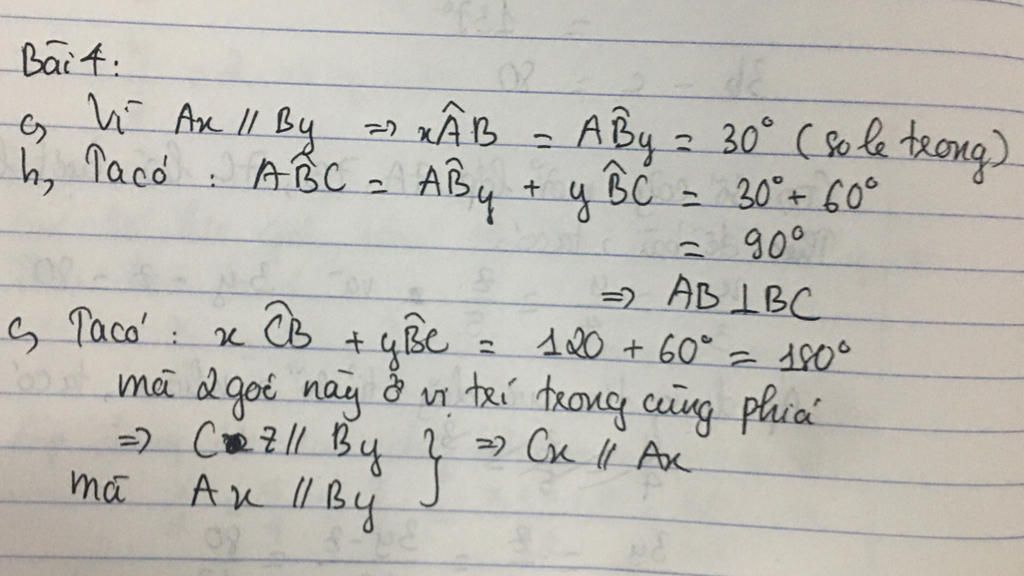 Bài 4:
a, Vì Ax // By => xÂB = AB̂y = 30° (so le trong)
b, Ta có : AB̂C = AB̂y + yB̂C = 30° + 60°
= 90°
=> AB ⊥ BC
c, Ta có : xĈB + yB̂C = 120 + 60° = 180°
mà 2 góc này ở vị trí trong cùng phía
=> Cz // By } => Cx // Ax
mà Ax // By